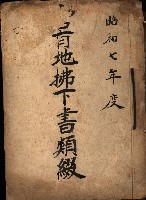 昭和七年度
官地拂下書類綴